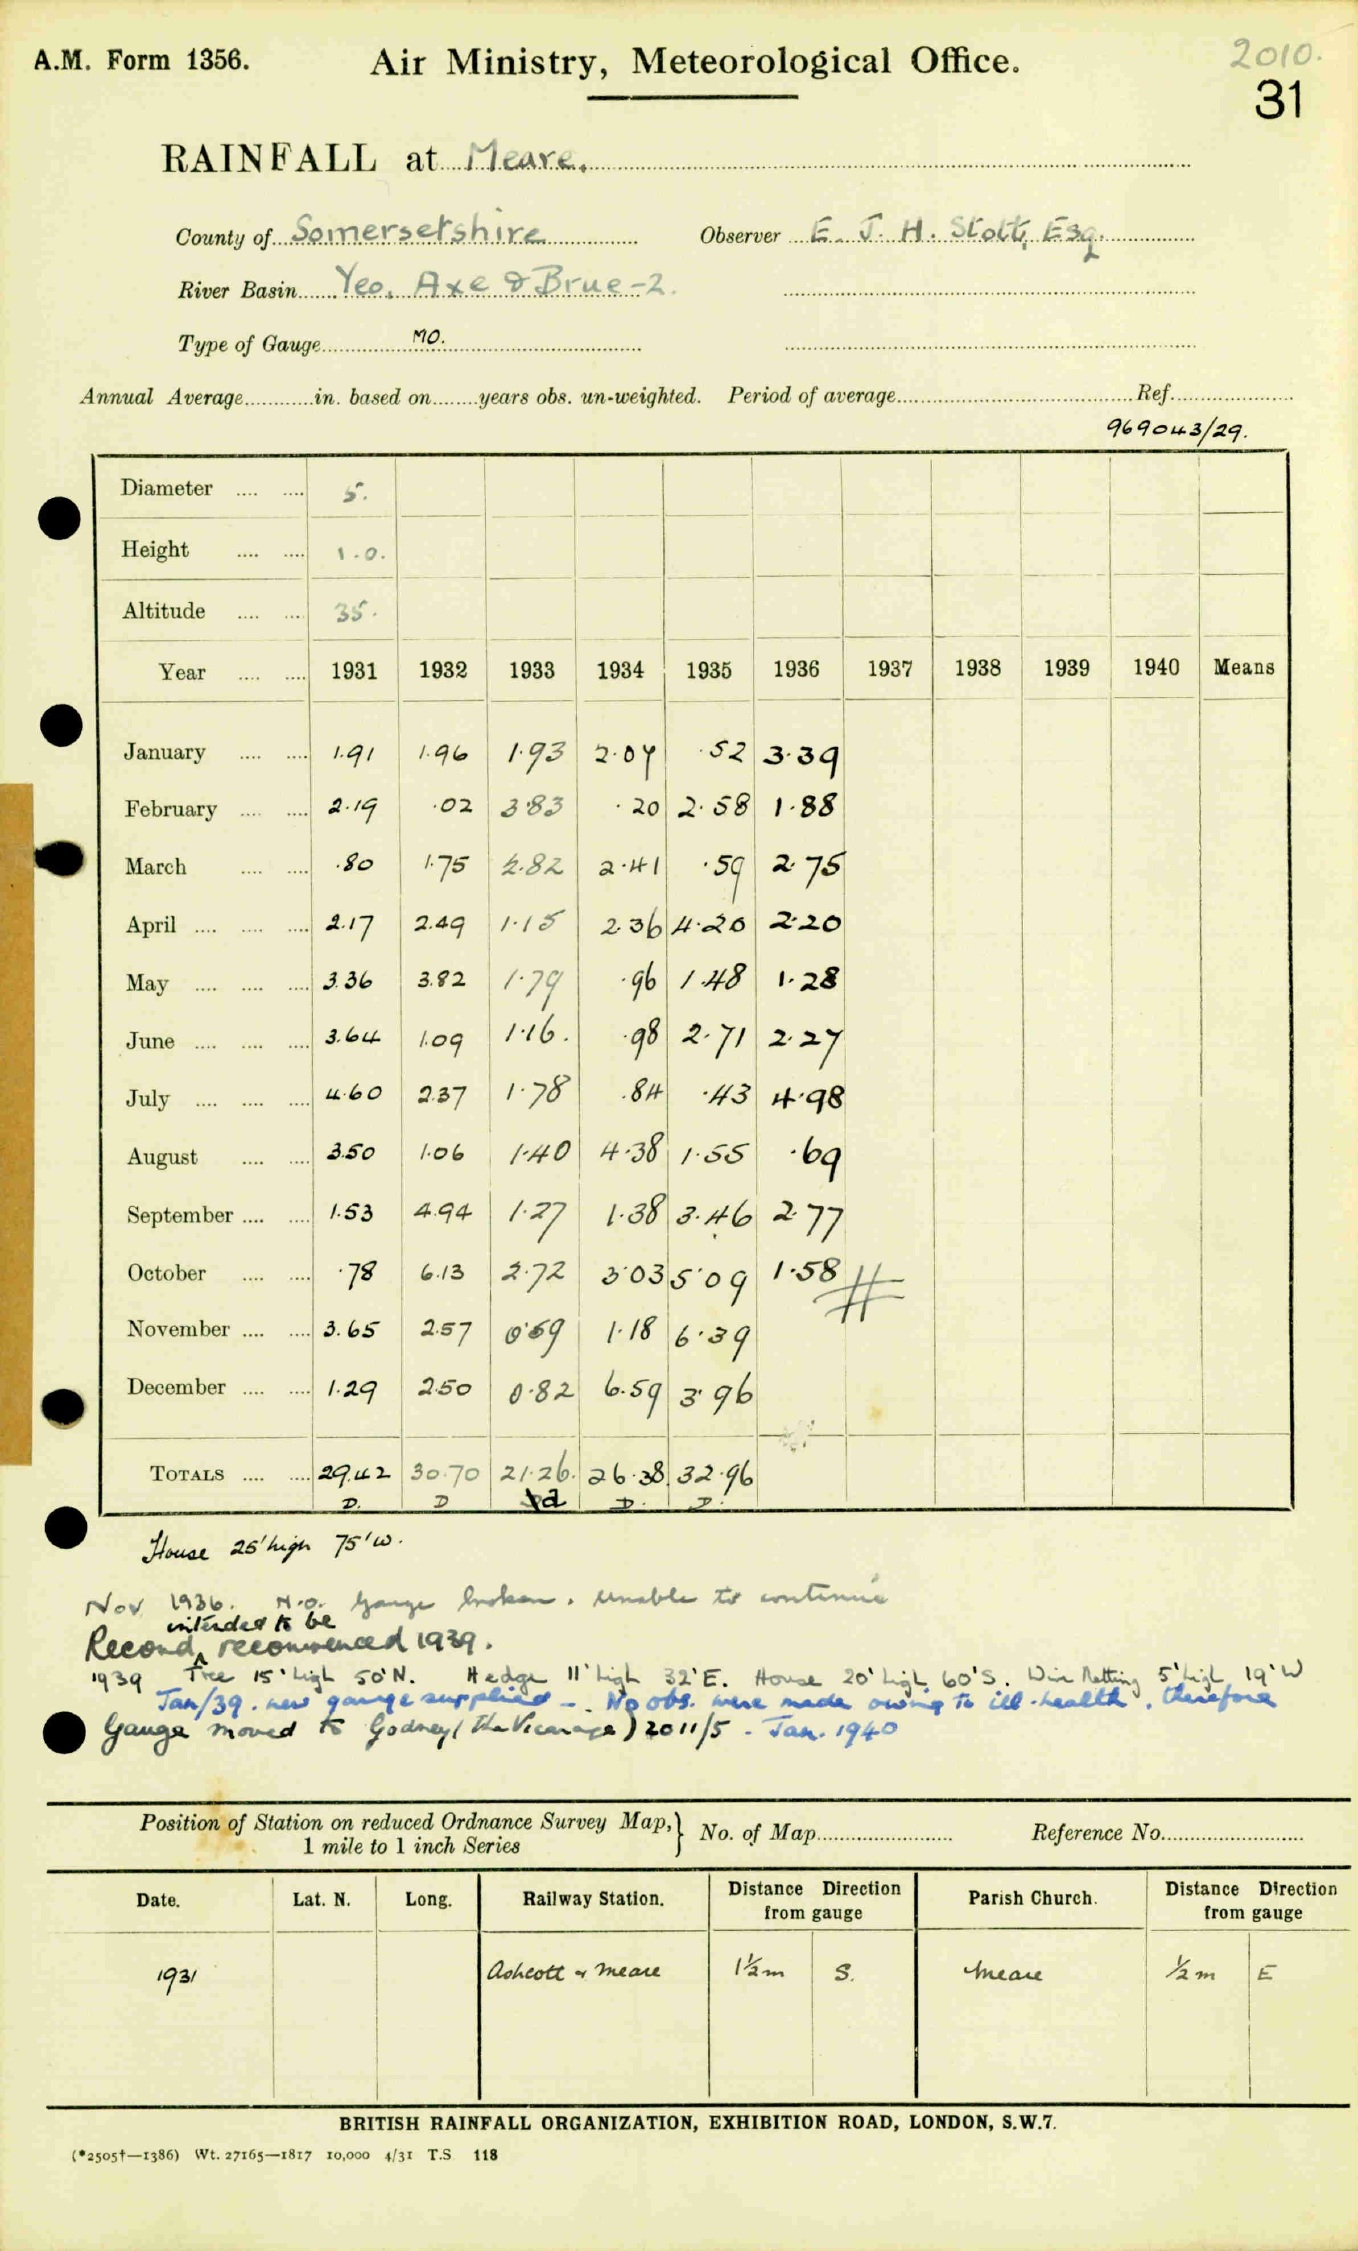 A.M. Form 1356. Air Ministry, Meteorological Office. 2010.
31
RAINFALL at Meare.
County of Somersetshire Observer E. J. H. Stott, Esq.
River Basin Yeo, Axe & Brue-2.
Type of Gauge MO.
Annual Average in. based on years obs. un-weighted. Period of average Ref.
969043/29.
Diameter 5.
Height 1.0.
Altitude 35.
Year 1931 1932 1933 1934 1935 1936 1937 1938 1939 1940 Means
January 1.91 1.96 1.93 2.07 .52 3.39
February 2.19 .02 3.83 .20 2.58 1.88
March .80 1.75 2.82 2.41 .59 2.75
April 2.17 2.49 1.15 2.36 4.20 2.20
May 3.36 3.82 1.79 .96 1.48 1.28
June 3.64 1.09 1.16. .98 2.71 2.27
July 4.60 2.37 1.78 .84 .43 4.98
August 3.50 1.06 1.40 4.38 1.55 .69
September 1.53 4.94 1.27 1.38 3.46 2.77
October .78 6.13 2.72 3.03 5.09 1.58
November 3.65 2.57 0.59 1.18 6.39
December 1.29 2.50 0.82 6.59 3.96
TOTALS 29.42 30.70 21.26. 26.38. 32.96
D. D d D. D.
House 25'high 75'W.
Nov 1936. M.O. gauge broken. Unable to continue
intended to be
Record recommenced 1939.
1939 Tree 15'high 50'N. Hedge 11'high 32'E. House 20'high 60'S. Wire Netting 5'high 19'W
Jan/39. new gauge supplied - No obs. were made owing to ill-health, therefore
Gauge moved to Godney (the Vicarage) 2011/5 - Jan. 1940
Position of Station on reduced Ordnance Survey Map, No. of Map Reference No.
1 mile to 1 inch Series
Date. Lat. N. Long. Railway Station. Distance Direction from gauge Parish Church. Distance Direction from gauge
1931 Ashcott & Meare 1½m S. Meare ½m E
BRITISH RAINFALL ORGANIZATION, EXHIBITION ROAD, LONDON, S.W.7.
(*2505†—1386) Wt. 27165—1817 10,000 4/31 T.S 118